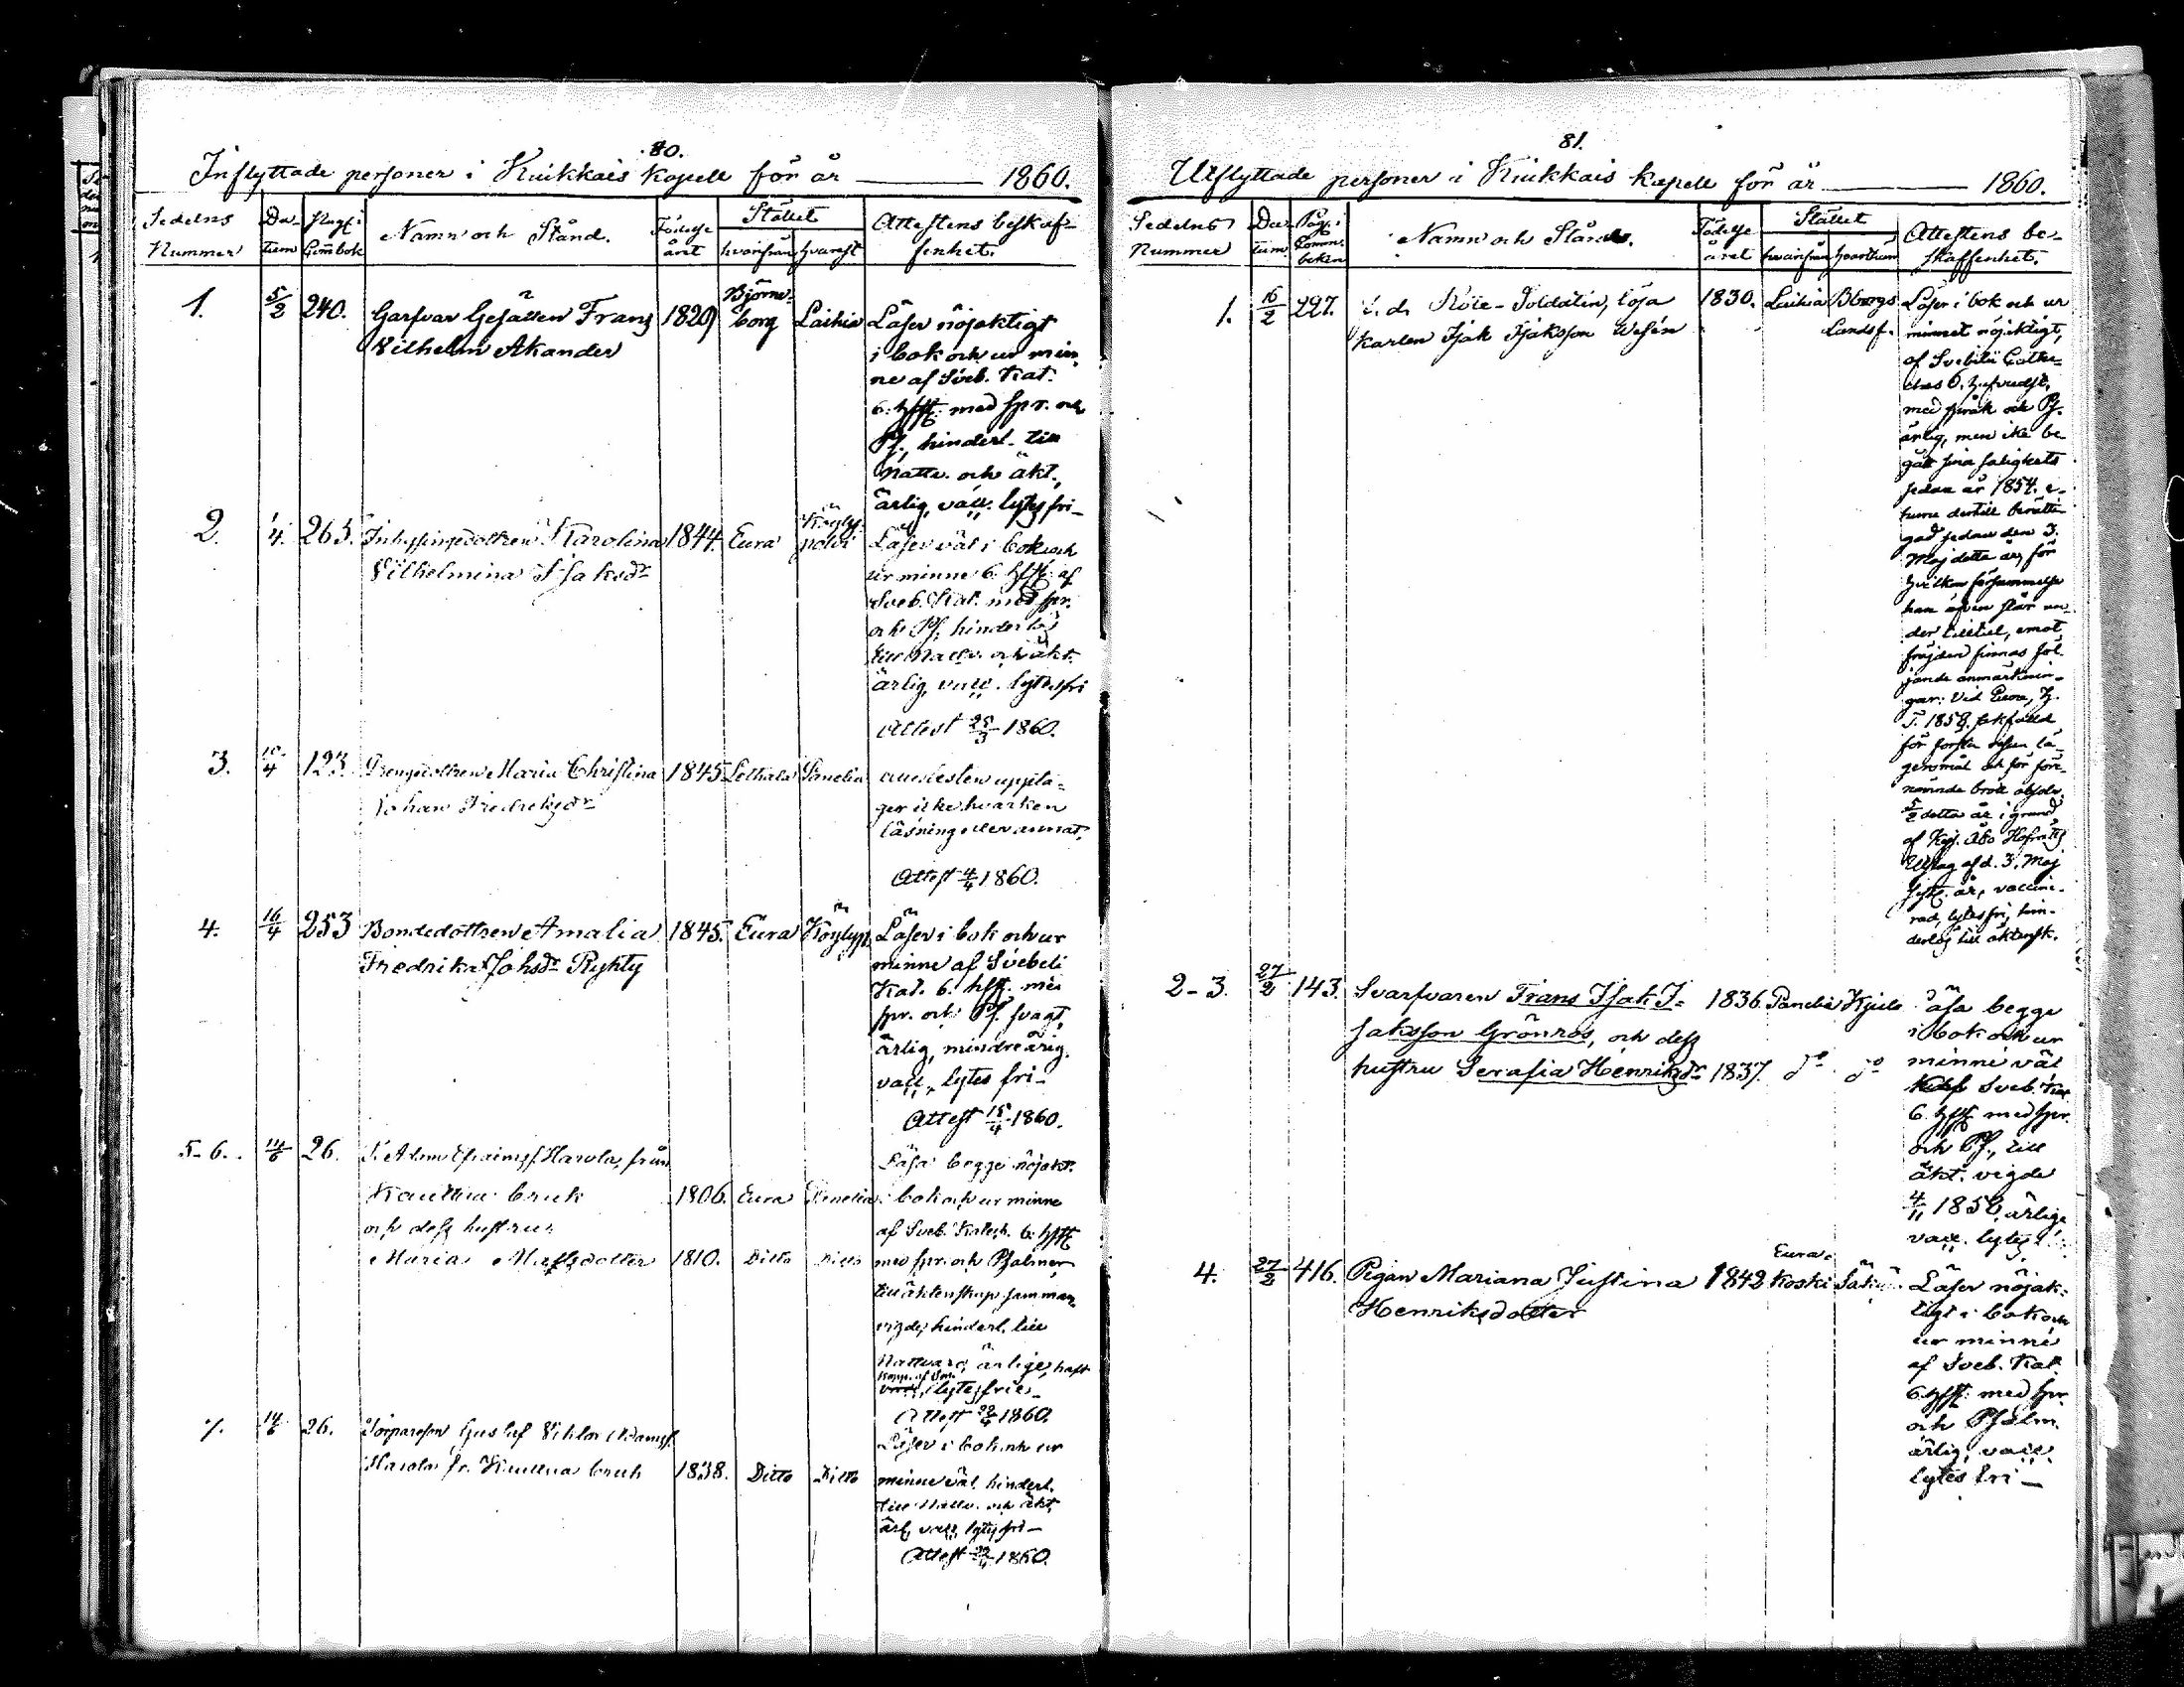 80.
Inflyttade personer i Kiukkais Kapell för år 1860.
Sedelns Nummer
Datum
Pag. i Combok
Namn och Stånd.
Födelse året
Stället
hvarifrån
hvarest
Attestens beskaffenhet.
1.
5/2
240.
Garfvar Gesällen Frans
Vilhelm Akander
1829
Björneborg
Laihia
Läser nöjaktigt
i bok och ur min
ne af Sveb. Kat.
6. hfst. med spr. och
Ps., hinderl. till
Nattv. och äkt.,
ärlig, vacc. lytesfri
2.
1/4.
263.
Inhysingsdottren Karolina
Vilhelmina Isaksdr
1844.
Eura
Köyly-
polvi
Läser väl i bok och
ur minne 6. hfst. af
Sveb. Kat. med spr.
och Ps., hinderlös
till Nattv. och äkt.
ärlig, vacc. lytesfri
Attest 25/3 1860.
3.
10/4
123.
Drengsdottren Maria Christina
Johan Fredriksdr
1845
Lethala
Panelia
attesten uppta-
ger icke hvarken
läsning eller annat.
Attest 4/4 1860.
4.
16/4
253
Bondedottren Amalia
Fredrika Johsdr Ryhty
1845.
Eura
Köylyp.
Läser i bok och ur
minne af Svebeli
Kat. 6. hfst. med
spr. och Ps. svagt,
ärlig, mindreårig.
vacc., lytes fri
Attest 15/4 1860.
5-6.
14/6
26.
T. Adam Efraimss. Harola från
Kauttua bruk
1806.
Eura
Panelia
och dess hustru
Maria Matsdotter
1810.
Ditto
Ditto
Läsa begge nöjakt.
i bok och ur minne
af Sveb. Katech. 6. hfst.
med spr. och Psalmer,
till äktenskap samman
vigde, hinderl. till
Nattvard, ärlige, haft
kopp. af Sm.
lytesfrie
Attest 22/4 1860.
7.
14/6
26.
Torpareson Gustaf Viktor Adamss.
Harola fr. Kauttua bruk
1838.
Ditto
Ditto
Läser i bok och ur
minne väl, hinderl.
till Nattv. och äkt.
ärl., vacc. lytesfri
Attest 22/4 1860.
81.
Utflyttade personer i Kiukkais kapell för år 1860.
Sedelns Nummer
Datum.
Pag. i Comm. boken
Namn och Stånd.
Födelse året
Stället
hvarifrån
hvarthän
Attestens be-
skaffenhet.
1.
16/2
297.
f. d. Rote-Soldaten, lösa
karlen Isak Isaksson Wesén
1830.
Laihia
Bborgs
Landsf.
Läser i bok och ur
minnet nöjaktigt,
af Svebilii Catke-
ches 6. hufvudst.
med språk och Ps.
ärlig, men icke be-
gått sina salighets
sedan år 1854.
dertill berätti-
gad sedan den 3.
Maj detta år, för
hvilken försammelse
han äfven står un-
der tilltal, emot
frejden finnas föl-
jande anmärknin-
gar: Vid Eura, H.
T. 1858. sakfälld
för första resan lä-
gersmål och för före-
nämnde brott absolv.
5/2 detta år i grund
af Kejs. Åbo Hofrätts
Utslag af d. 3. Maj
år, vaccine-
rad, lytesfri, hin-
derlös till äktensk.
2-3.
27/2
143.
Svarfvaren Frans Isak I-
saksson Grönros, och dess
hustru Serafia Henriksdr
1836.
Panelia
Kjulo
1837.
do
do
Läsa begge
i bok och ur
minne väl
Sveb. Kat
6. hfst med spr.
och Ps., till
äkt. vigde
4/11 1858, ärlige
vacc. lytes
4.
27/2
416.
Pigan Mariana Justina
Henriksdotter
1842
Eura
Koski
Säkylä
Läser nöjak-
tigt i bok och
ur minne
af Sveb. Kat.
6. hfst. med spr.
och Psalm.
ärlig, vacc.
lytes fri